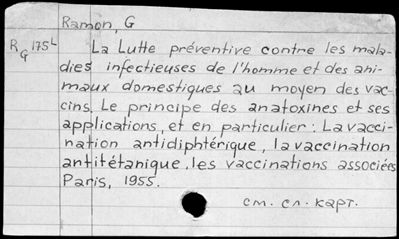 Ramon, G
R G 175L
La Lutte préventive contre les mala-
dies infectieuses de l'homme et des ani-
maux domestiques au moyen des vac-
cins. Le principe des anatoxines et ses
applications, et en particulier: La vacci-
nation antidiphtérique, la vaccination
antitétanique, les vaccinations associées
Paris, 1955.
см. сл. карт.